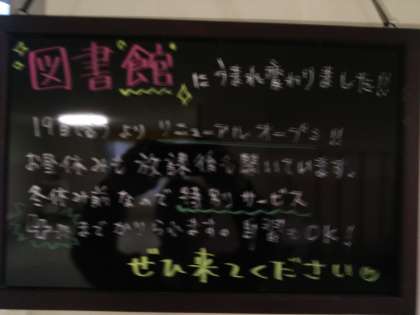 図書館にうまれ変わりました!!
19日(金)より リニューアルオープン!!
お昼休みも放課後も開いています。
冬休み前なので特別サービス
までかりられます。自習もOK!
ぜひ来てください